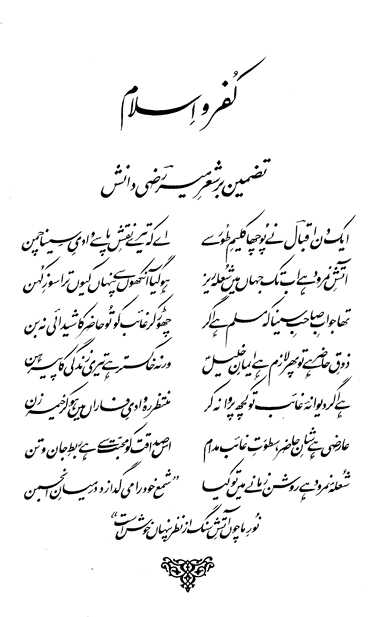 کفر و اسلام
تضمین بر شعرِ میر رضی دانش
ایک دن اقبالؔ نے پوچھا کلیمِ طُور سے اے کہ تیرے نقشِ پا سے وادیِ سینا چمن
آتشِ نمرود ہے اب تک جہاں میں شعلہ ریز ہوگیا آنکھوں سے پنہاں کیوں ترا سوزِ کُہن
تھا جوابِ صاحبِ سینا کہ مسلم ہے اگر چھوڑ کر غائب کو تُو حاضر کا شیدائی نہ بن
ذوقِ حاضر ہے تو پھر لازم ہے ایمانِ خلیلؑ ورنہ خاکستر ہے تیری زندگی کا پیرہن
ہے اگر دیوانۂ غائب تو کچھ پروا نہ کر منتظر رہ وادیِ فاراں میں ہو کر خیمہ زن
عارضی ہے شانِ حاضر، سطوتِ غائب مدام اس صداقت کو محبت سے ہے ربطِ جان و تن
شعلۂ نمرود ہے روشن زمانے میں تو کیا ”شمع خود را می گدازد درمیانِ انجمن
نورِ ما چوں آتشِ سنگ از نظر پنہاں خوش است“